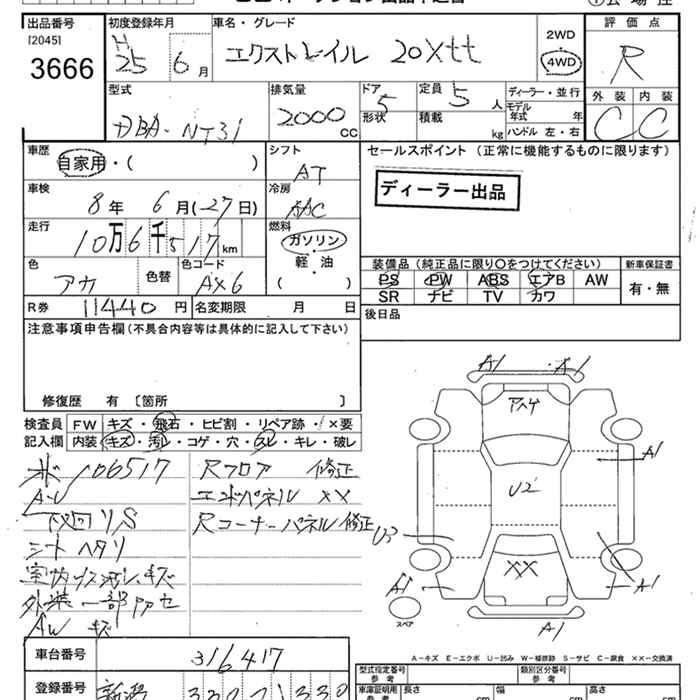 出品番号 初度登録年月 車名・グレード 評価点
[2045] H 25 6月 エクストレイル 20Xtt 2WD
3666 4WD R
型式 排気量 ドア 5 定員 5人 ディーラー・並行 外装 内装
DBA-NT31 2000 CC 形状 積載 kg モデル年式 年 C C
ハンドル 左・右
車歴 シフト セールスポイント (正常に機能するものに限ります)
自家用・( ) AT
車検 冷房 ディーラー出品
8年 6月(27日) AAC
走行 燃料
10万6千517km ガソリン
軽・油
色 色替 色コード ( ) 装備品 (純正品に限り〇をつけてください) 新車保証書
アカ AX6 PS PW ABS エアB AW 有・無
SR ナビ TV カワ
R券 11440円 名変期限 月 日 後日品
注意事項申告欄 (不具合内容等は具体的に記入して下さい)
修復歴 有 [箇所 ]
検査員 FW キズ・飛石・ヒビ割・リペア跡・×要
記入欄 内装 キズ・汚レ・コゲ・穴・スレ・キレ・破レ
106517 Rフロア 修正
エンドパネル ××
下回リS Rコーナーパネル修正
シートヘタリ
外装一部
AW キズ
A1 A1
アスケ
A1
U2
U3
××
A1 A1
スペア
A1
A-キズ E-エクボ U-凹み W-補修跡 S-サビ C-腐食 ××-交換済
車台番号 316417 型式指定番号 参考 類別区分番号 参考
登録番号 新潟 330 車庫証明用 参考 長さ cm 幅 cm 高さ cm